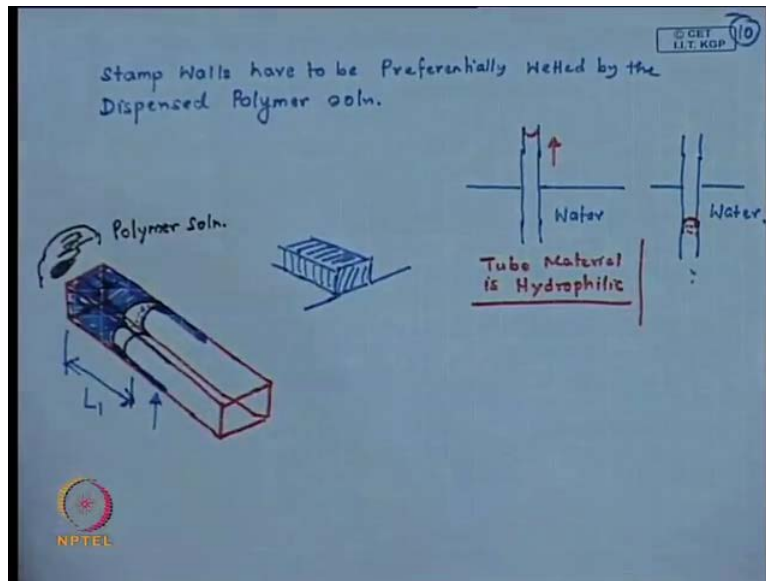 © CET
I.I.T. KGP
10
Stamp Walls have to be Preferentially Wetted by the
Dispensed Polymer soln.
Polymer Soln.
Water
Water.
Tube Material
is Hydrophilic
L1
NPTEL